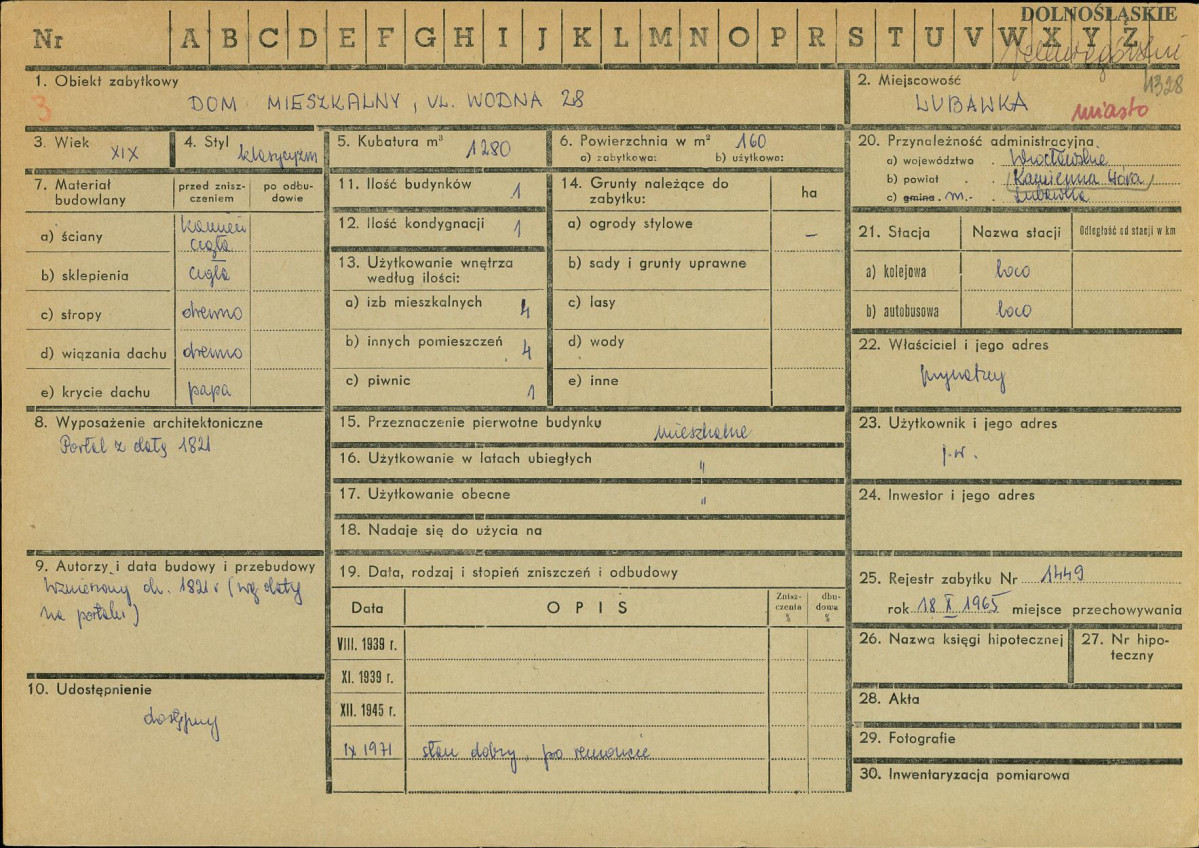 DOLNOŚLĄSKIE
Nr A B C D E F G H I J K L M N O P R S T U V W X Y Z
1328
1. Obiekt zabytkowy
3
DOM MIESZKALNY, UL. WODNA 28
2. Miejscowość
LUBAWKA
miasto
3. Wiek
XIX
4. Styl
klasycyzm
5. Kubatura m³ 1280
6. Powierzchnia w m² 160
a) zabytkowa: b) użytkowa:
7. Materiał budowlany
przed zniszczeniem
po odbudowie
a) ściany kamień cegła
b) sklepienia cegła
c) stropy drewno
d) wiązania dachu drewno
e) krycie dachu papa
8. Wyposażenie architektoniczne
Portal z datą 1821
9. Autorzy i data budowy i przebudowy
Wzniesiony ok. 1821 r (wg daty
na portalu)
10. Udostępnienie
dostępny
11. Ilość budynków 1
12. Ilość kondygnacji 1
13. Użytkowanie wnętrza
według ilości:
a) izb mieszkalnych 4
b) innych pomieszczeń 4
c) piwnic 1
14. Grunty należące do
zabytku:
ha
a) ogrody stylowe –
b) sady i grunty uprawne
c) lasy
d) wody
e) inne
15. Przeznaczenie pierwotne budynku mieszkalne
16. Użytkowanie w latach ubiegłych "
17. Użytkowanie obecne "
18. Nadaje się do użycia na
19. Data, rodzaj i stopień zniszczeń i odbudowy
Data
OPIS
Zniszczenia %
dbudowa %
VIII. 1939 r.
XI. 1939 r.
XII. 1945 r.
IX 1971 stan dobry, po remoncie
20. Przynależność administracyjna
a) województwo . Wrocławskie
b) powiat . . Kamienna Góra
c) gmina . m. - . Lubawka
21. Stacja
Nazwa stacji
Odległość od stacji w km
a) kolejowa loco
b) autobusowa loco
22. Właściciel i jego adres
prywatny
23. Użytkownik i jego adres
j.w.
24. Inwestor i jego adres
25. Rejestr zabytku Nr 1449
rok 18 X 1965 miejsce przechowywania
26. Nazwa księgi hipotecznej
27. Nr hipoteczny
28. Akta
29. Fotografie
30. Inwentaryzacja pomiarowa